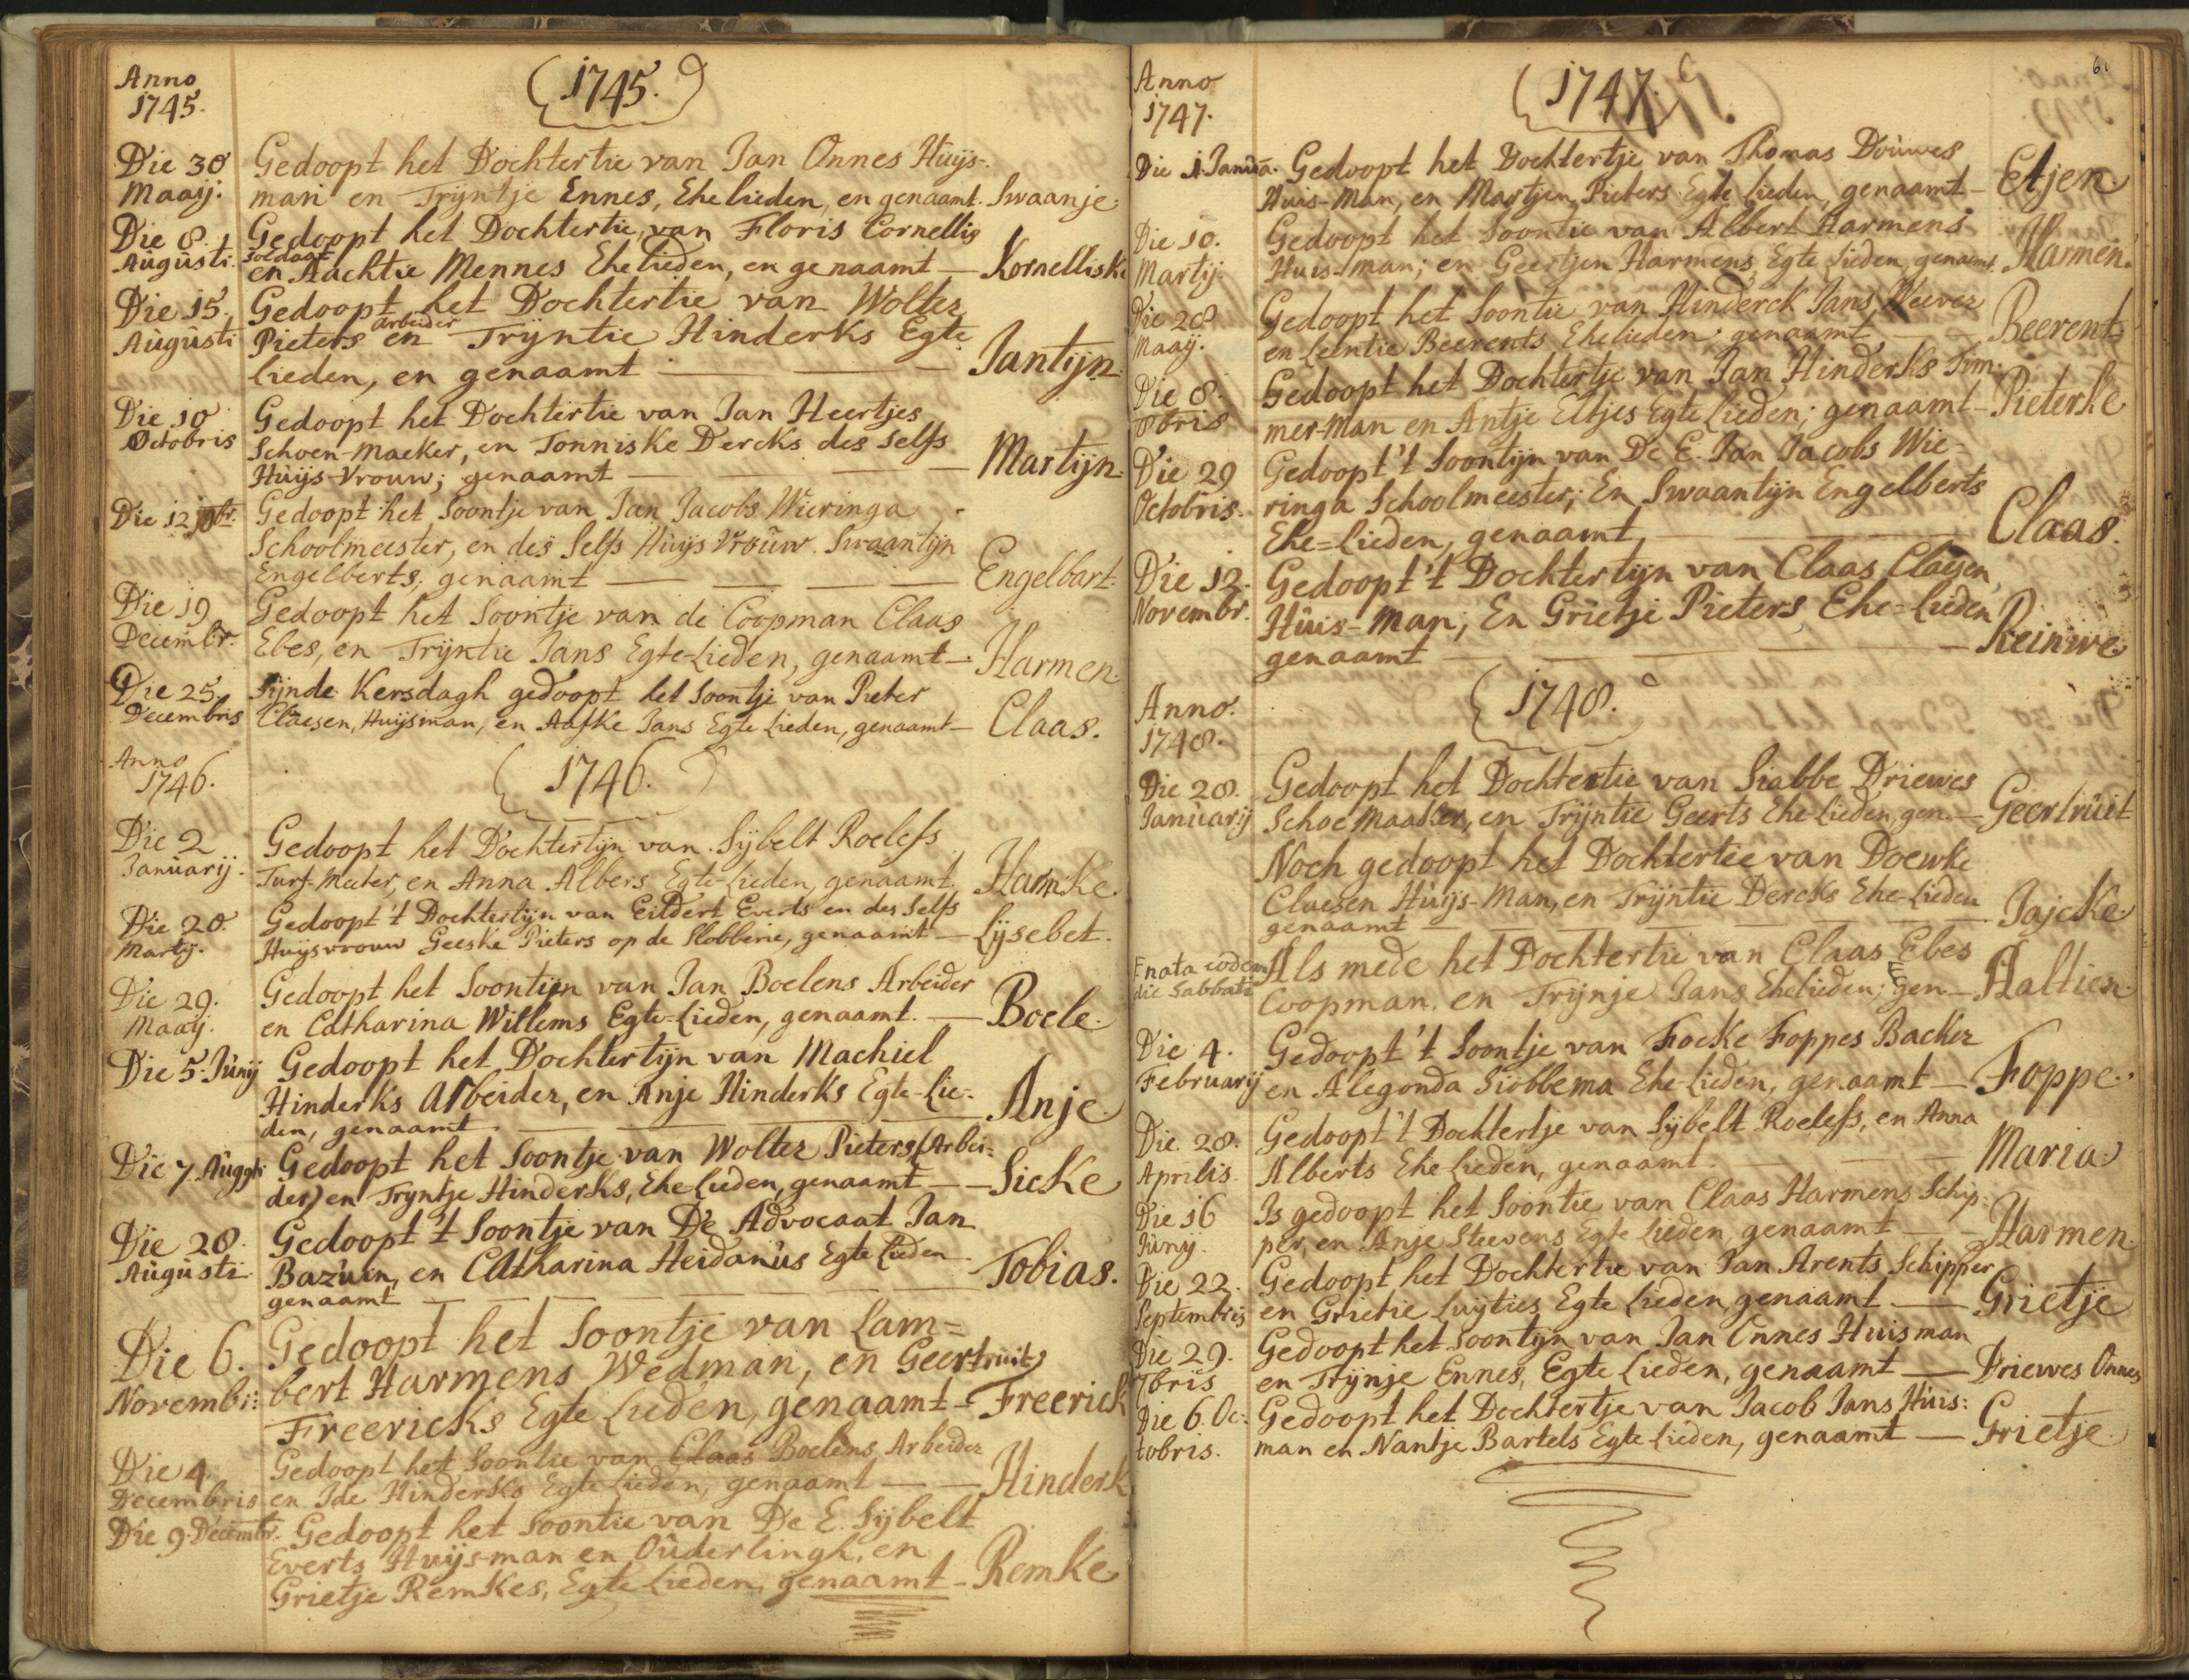 Anno
1745.
(1745.)
Die 30 Gedoopt het Dochtertie van Jan Onnes Huijs-
Maaij. man en Trijntje Ennes, Ehelieden, en genaamt. Swaanje.
Die 8. Gedoopt het Dochtertie van Floris Cornellis
soldaat
Augusti. en Aachtie Mennes Ehelieden, en genaamt — Kornelliske
Die 15. Gedoopt het Dochtertie van Wolter
arbeider
Augusti Pieters en Trijntie Hinderks Egte
lieden, en genaamt — — Jantijn.
Die 10 Gedoopt het Dochtertie van Jan Heertjes
Octobris Schoen-maeker, en Tonniske Dercks des selfs
Huijs-Vrouw; genaamt — — Martijn.
Die 12 Gedoopt het Soontje van Jan Jacobs Wieringa
Schoolmeester, en des Selfs Huijs Vrouw. Swaantijn
Engelberts; genaamt — — — Engelbart.
Die 19 Gedoopt het Soontje van de Coopman Claas
Decembr. Ebes, en Trijntie Jans Egte-Lieden, genaamt — Harmen.
Die 25. Sijnde Kersdagh gedoopt het Soontje van Pieter
Decembris Claesen, Huijsman, en Aafke Jans Egte Lieden, genaamt — Claas.
Anno
1746.
(1746.)
Die 2 Gedoopt het Dochtertijn van Sijbelt Roelefs
Januarij. Turf-Meeter, en Anna Albers Egte-Lieden, genaamt Hamke.
Die 20. Gedoopt 't Dochtertijn van Eildert Everts en des Selfs
Martij. Huijsvrouw Geeske Pieters op de Slobberie, genaamt — Lijsebet.
Die 29. Gedoopt het Soontijn van Jan Boelens Arbeider
Maaij. en Catharina Willems Egte-Lieden, genaamt. — Boele.
Die 5. Junij Gedoopt het Dochtertijn van Machiel
Hinderks Arbeider, en Anje Hinderks Egte-Lie-
den, genaamt. — — — Anje.
Die 7. Augsti Gedoopt het Soontje van Wolter Pieters (Arbei-
der) en Tryntje Hinderks, Ehe-Lieden, genaamt — — Sieke
Die 28. Gedoopt 't Soontje van De Advocaat Jan
Augusti. Bazuin, en Catharina Heidanus Egte Lieden
genaamt — — — Tobias.
Die 6. Gedoopt het Soontje van Lam=
Novembr: bert Harmens Wedman, en Geertruit
Freericks Egte Lieden, genaamt — Freerick
Die 4. Gedoopt het Soontie van Claas Boelens Arbeider
Decembris en Ide Hinderks Egte Lieden, genaamt — — Hinderk
Die 9. Decembr. Gedoopt het Soontie van De E. Sijbelt
Everts Huijs-man en Ouderlingh, en
Grietje Remkes, Egte Lieden, genaamt — Remke
61
Anno
1747.
(1747.)
Die 1. Janua. Gedoopt het Dochtertje van Thomas Douwes
Huis-Man, en Martjen Pieters Egte Lieden, genaamt — Etjen.
Die 10. Gedoopt het Soontie van Albert Harmens
Martij. Huis-man; en Geertjen Harmens, Egte Lieden, genaamt. Harmen.
Die 28 Gedoopt het Soontie van Hinderck Jans Wever
Maaij. en Leentie Beerents Ehelieden; genaamt — — Beerent.
Die 8. Gedoopt het Dochtertje van Jan Hinderks Tim-
8bris mer-Man en Antje Eltjes Egte Lieden; genaamt — Pieterke
Die 29 Gedoopt 't Soontijn van De E. Jan Jacobs Wie-
Octobris. ringa Schoolmeester; En Swaantijn Engelberts
Ehe=Lieden, genaamt — — Claas.
Die 12. Gedoopt 't Dochtertijn van Claas Claesen,
Novembr. Huis-man; En Grietje Pieters, Ehe=Lieden
genaamt — — — Reinwe.
Anno.
1748.
(1748.)
Die 28. Gedoopt het Dochtertie van Siabbe Driewes
Januarij Schoe Maaker, en Trijntie Geerts Ehe-Lieden, gen. — Geertruit
Noch gedoopt het Dochtertie van Doewke
Claesen Huijs-Man, en Trijntie Dercks Ehe-Lieden
genaamt — — — Jajcke.
Enata eodem Als mede het Dochtertie van Claas Ebes
die Sabbati Coopman. en Trijnje Jans Ehelieden; gen — Aaltien.
Die 4. Gedoopt 't Soontje van Focke Foppes Backer
Februarij en Alegonda Siobbema Ehe-Lieden, genaamt — Foppe.
Die 28. Gedoopt 't Dochtertje van Sijbelt Roelefs, en Anna
Aprilis Alberts Ehe-Lieden, genaamt. — — Maria.
Die 16 Is gedoopt het Soontie van Claas Harmens Schip-
Junij. per, en Anje Steevens Egte Lieden, genaamt — — Harmen.
Die 22. Gedoopt het Dochtertie van Jan Arents Schipper
Septembris en Grietie Luijties Egte Lieden, genaamt — Grietje
Die 29. Gedoopt het Soontijn van Jan Onnes Huisman
7bris en Trijnje Ennes, Egte Lieden, genaamt — Driewes Onnes
Die 6. Oc- Gedoopt het Dochtertje van Jacob Jans Huis:
tobris. man en Nantje Bartels Egte Lieden, genaamt — Grietje.